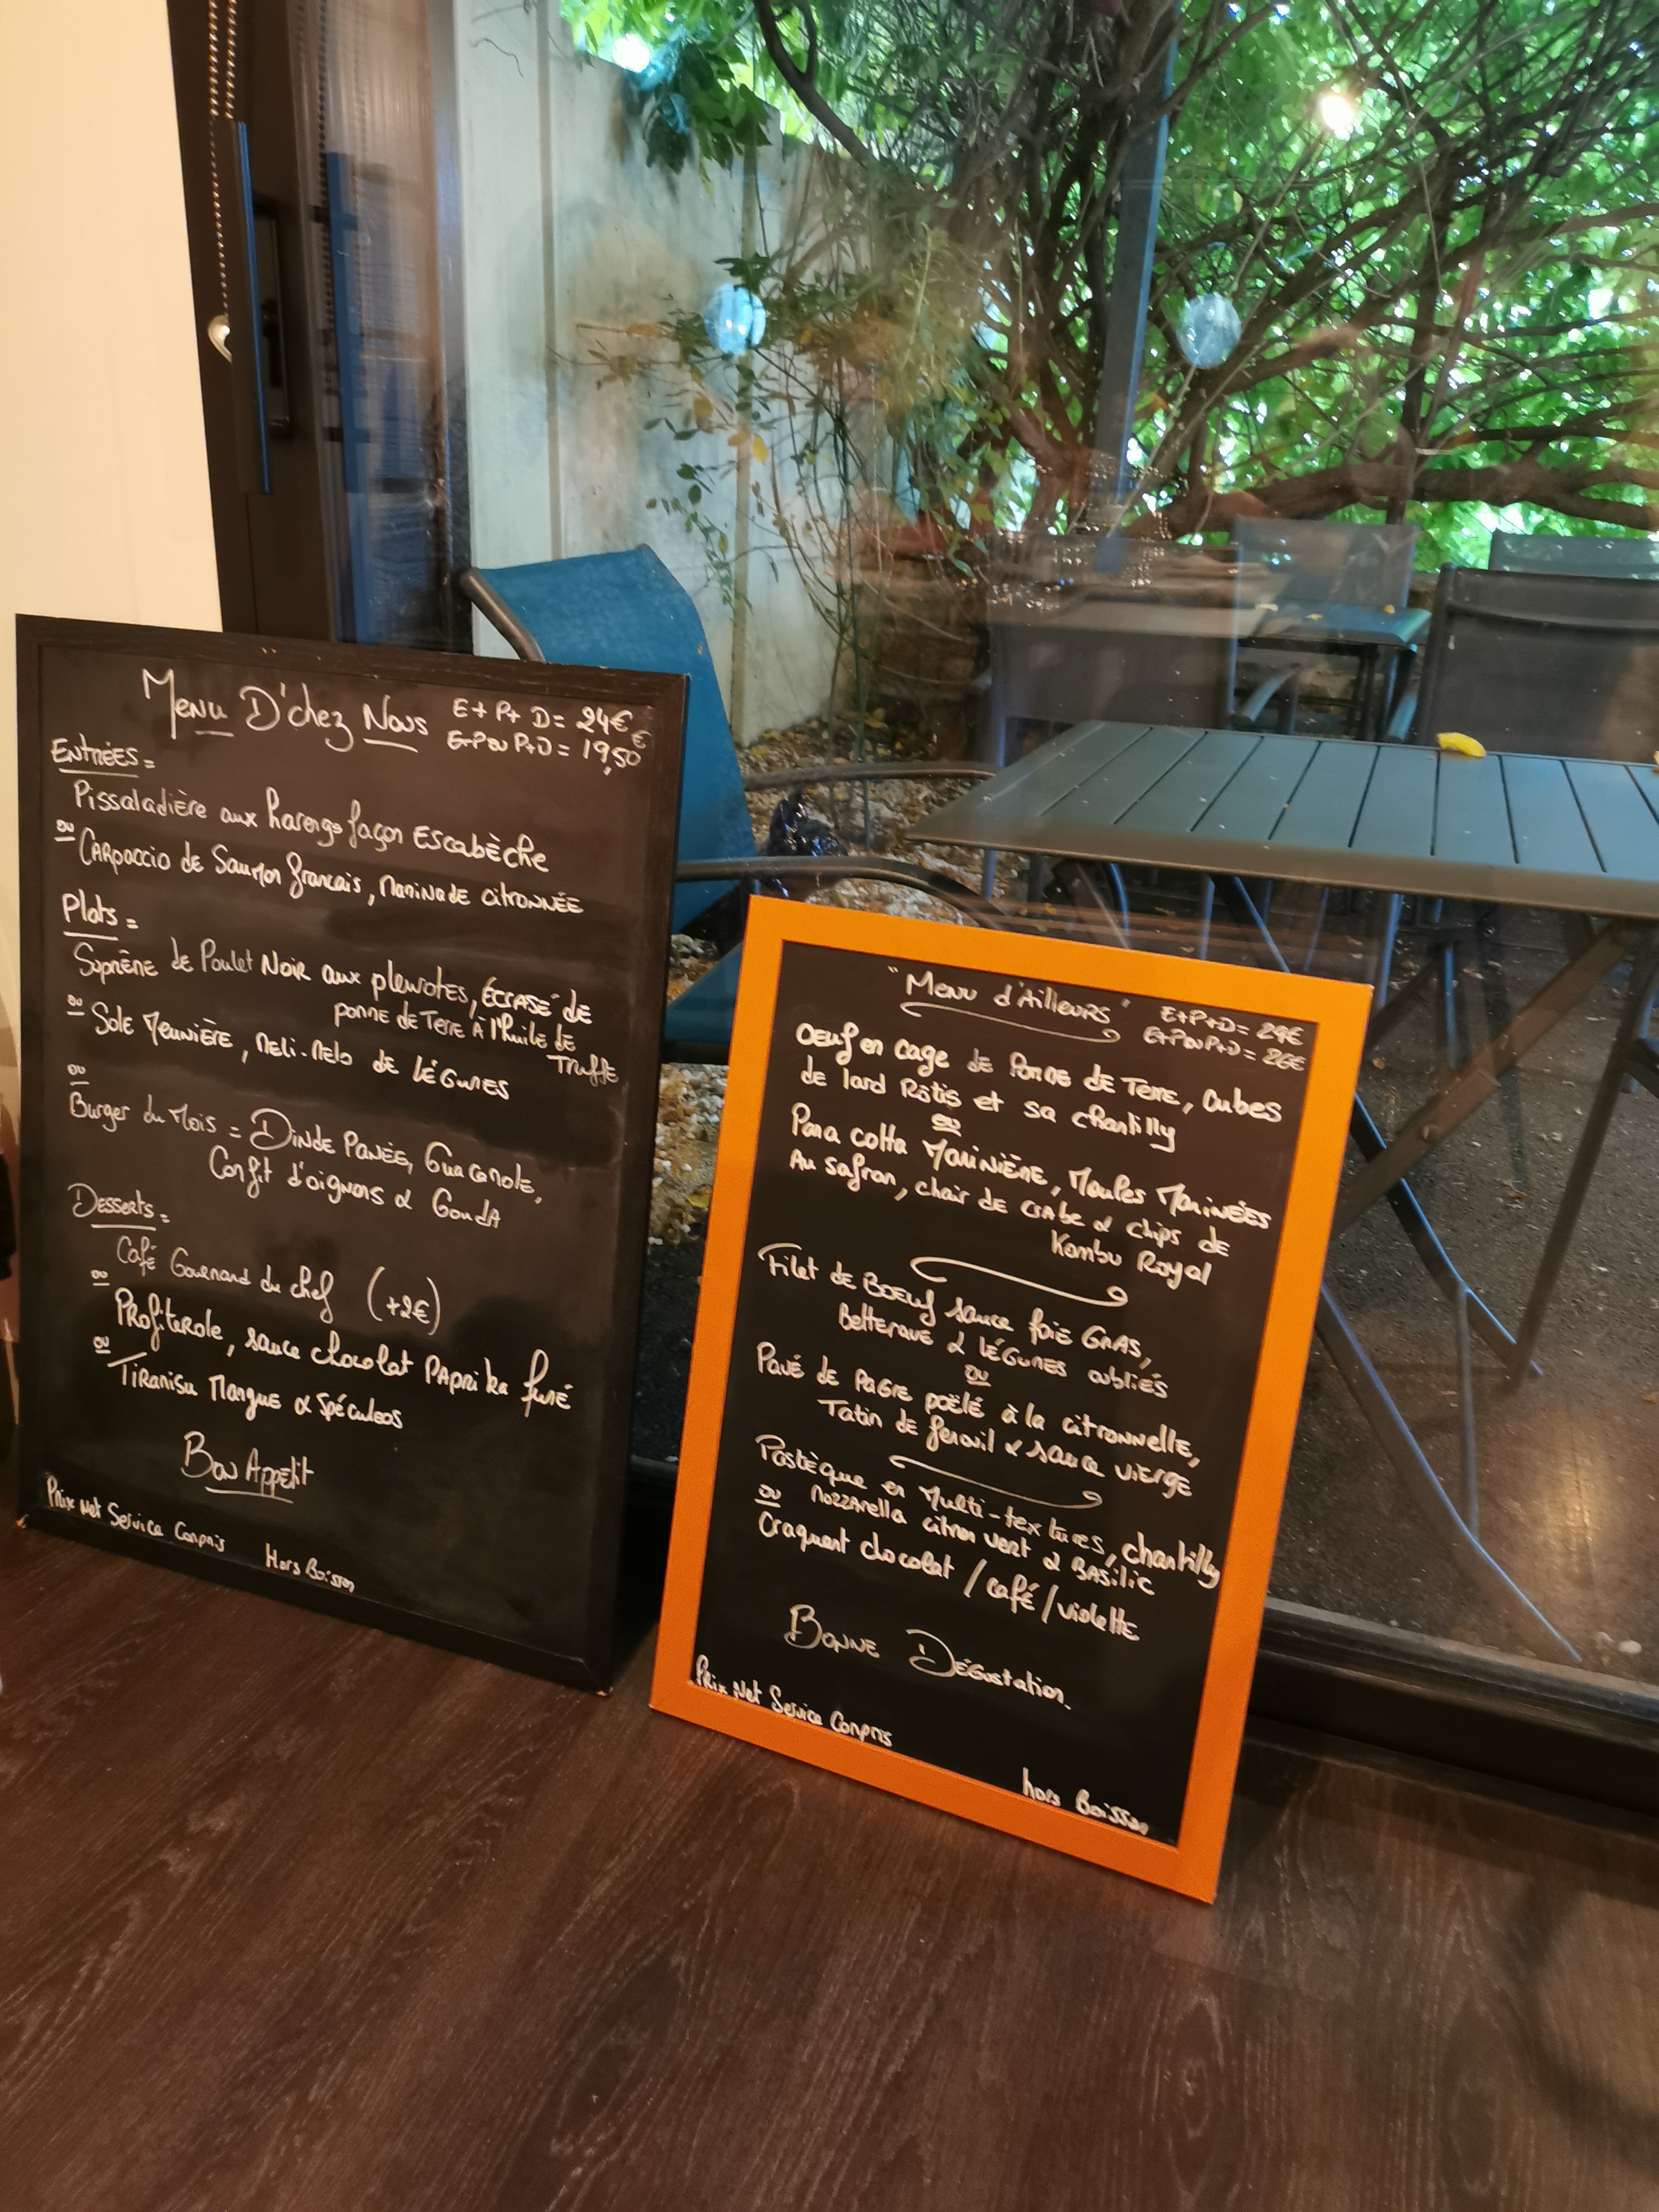 Menu D'chez Nous
E+ P+ D = 24€
E+P ou P+D = 19,50€
Entrées =
Pissaladière aux harengs façon Escabèche
ou
Carpaccio de Saumon français, marinade citronnée
Plats =
Suprême de Poulet Noir aux pleurotes, écrasé de
pomme de Terre à l'huile de
Truffe
ou
Sole Meunière, meli-melo de légumes
ou
Burger du Mois = Dinde Panée, Guacamole,
Confit d'oignons & Gouda
Desserts =
Café Gourmand du chef (+2€)
ou
Profiterole, sauce chocolat Paprika fumé
ou
Tiramisu Mangue & Spéculoos
Bon Appétit
Prix Net Service Compris Hors Boisson
"Menu d'Ailleurs"
E+P+D = 29€
E+P ou P+D = 26€
Oeuf en cage de Pomme de Terre, cubes
de lard Rôtis et sa chantilly
ou
Pana cotta Marinière, Moules Marinées
Au safran, chair de crabe & chips de
Kombu Royal
Filet de Boeuf sauce foie Gras,
Betterave & légumes oubliés
ou
Pavé de Pagre poêlé à la citronnelle,
Tatin de fenouil & sauce vierge
Pastèque en Multi-textures, chantilly
mozzarella citron vert & Basilic
ou
Craquant chocolat / café / violette
Bonne Dégustation
Prix Net Service Compris
hors Boisson